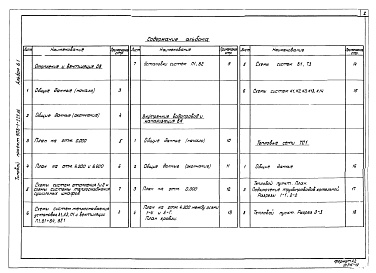 Содержание альбома
Лист
Наименование
Примечание стр.
Отопление и вентиляция ОВ
1 Общие данные (начало) 3
2 Общие данные (окончание) 4
3 План на отм. 0.000 5
4 План на отм. 4.200 и 6.600 6
5 Схемы систем отопления 1 и 2 и схемы системы теплоснабжения сушильных шкафов 7
6 Схемы систем теплоснабжения установок
Лист
Наименование
Примечание стр.
7 Установки систем П1, В2 9
Внутренние водопровод и канализация ВК
1 Общие данные (начало) 10
2 Общие данные (окончание) 11
3 План на отм. 0.000 12
План на отм. 4.200 между осями
План кровли 13
Лист
Наименование
Примечание стр.
5 Схемы систем В1, Т3 14
6 Схемы систем 15
Тепловые сети ТС1.
1 Общие данные 16
2 Тепловой пункт. План
Подключение трубопроводов котельной
Разрезы 1-1, 2-2 17
3 Тепловой пункт. Разрез 3-3 18
Типовой проект
Альбом
2
Формат